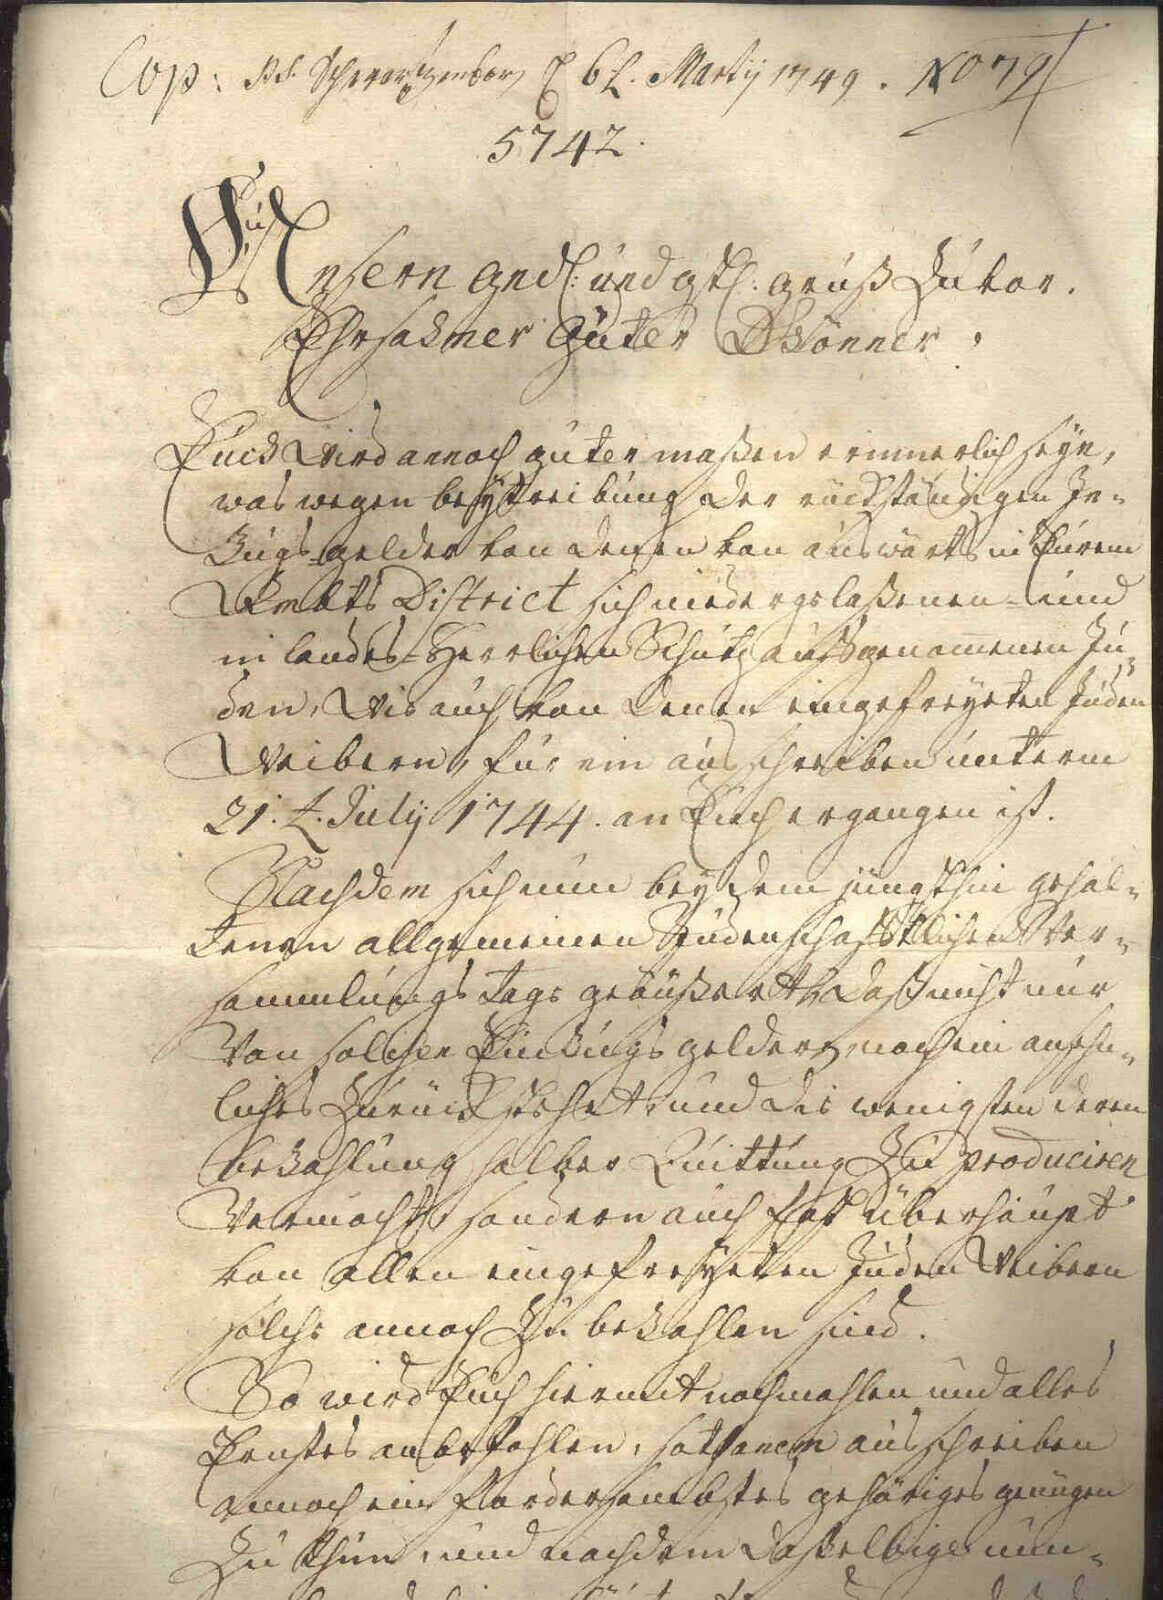 Cop: Schwarzenberg 6t. Martij 1749. No 79
5742.
Unsern gndl: und gstl: gruß Zuvor.
Ehrsahmer Guter Gönner.
Euch wird annoch guter maßen erinnerlich seyn,
was wegen beytreibung der rückständigen In-
Zugs-gelder von denen von auswärts in Eurem
Ambts District sich niedergelaßenen und
in landes-Herrlichen Schutz auffgenommenen Ju-
den, Wie auch von denen eingefreyeten Juden
Weibern, für ein ausschreiben unterm
21.t. July 1744. an Euch ergangen ist.
Nachdem sich nun bey dem jüngsthin gehal-
tenen allgemeinen Judenschafftlichen Ver-
sammlungs Tage geäußert, daß nicht nur
Von solchen Einzugs geldern noch ein ansehn-
liches Zurück stehet, und die wenigsten deren
bezahlung halber Quittung Zu produciren
Vermocht, sondern auch fast überhaupt
von allen eingefreyeten Juden Weibern
solche annoch Zu bezahlen sind.
So wird Euch hiermit nochmahlen und alles
Ernstes anbefohlen, sothanem ausschreiben
annoch ein fördersambstes gehöriges genügen
Zu thun, und nachdem daßelbige nun-